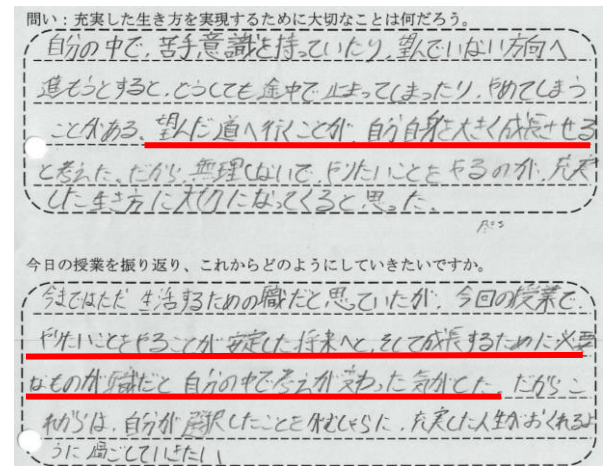 問い:充実した生き方を実現するために大切なことは何だろう。
自分の中で、苦手意識を持っていたり、望んでいない方向へ
進もうとすると、どうしても途中で止まってしまったり、やめてしまう
ことがある、望んだ道へ行くことが、自分自身を大きく成長させる
と考えた。だから、無理しないで、やりたいことをやるのが、充実
した生き方に大切になってくると思った。
今日の授業を振り返り、これからどのようにしていきたいですか。
今まではただ生活するための職だと思っていたが、今回の授業で、
やりたいことをやることが安定した将来へと、そして成長するために必要
なものが職だと自分の中で考えが変わった気がした。だからこ
れからは、自分が選択したことをがむしゃらに、充実した人生がおくれるよ
うに過ごしていきたい